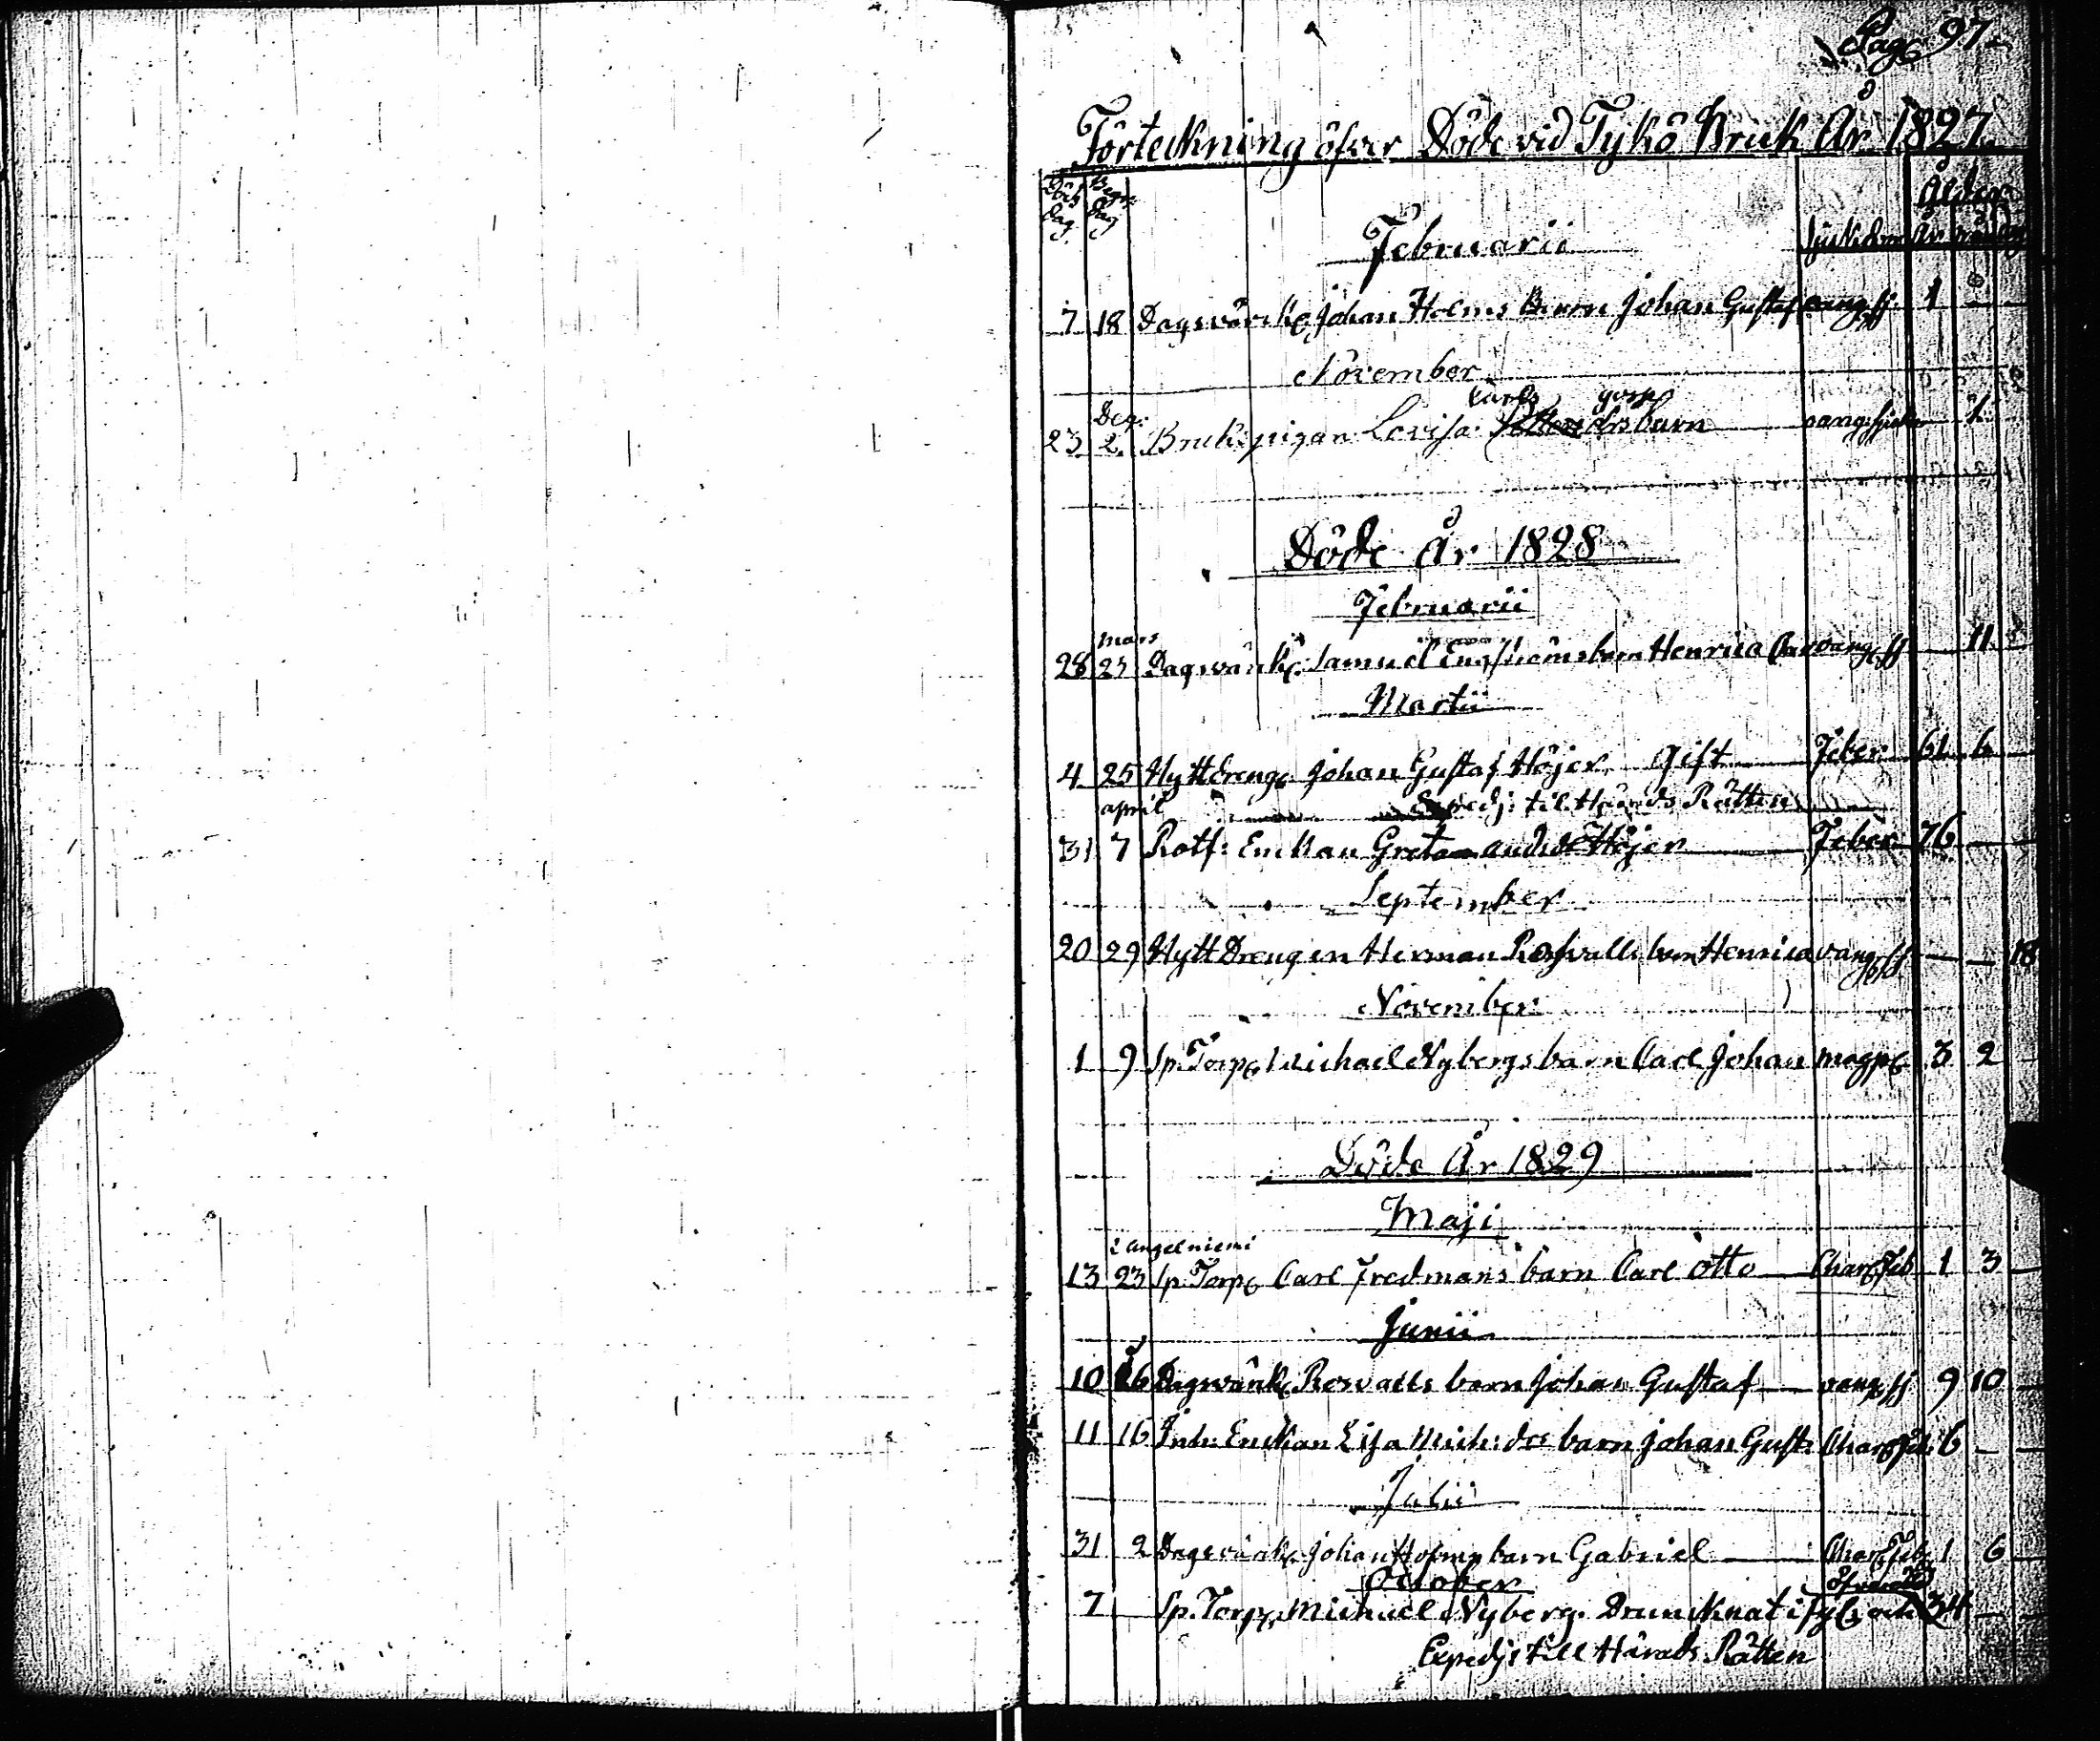 Pag 97.
Förteckning öfver Döde vid Tykö Bruk År 1827.
Döds dag Begr. dag Sjukdom Ålder År
Februarii
7 18 Dagsvärk. Johan Holms Barn Johan Gustaf 1
November
Carls
Dec:
23 2 Brukspigan Lovisa barn 1
Döde År 1828
Februarii
Mars
28 23 Dagsvärk. Samuel barn Henrica 11
Martii
4 25 Hyttdreng. Johan Gustaf Höjer Gift Feber 61 6
april til Härads Rätten
31 7 Rotf: Enkan Greta Höjer Feber 76
September
20 29 Hytt Drengen Herman Rosvalls barn Henrica vang. sj 18
November
1 9 Sp. Torp. Michael Nybergs barn Carl Johan magpl 3 2
Döde År 1829
Maji
i Angelniemi
13 23 Sp. Torp. Carl Fredmans barn Carl Otto Char. Feb 1 3
Junii
10 16 Dagsvärk. Rosvalls barn Johan Gustaf vang. sj 9 10
11 16 Inh: Enkan Lisa Mich: drs barn Johan Gust: Char. Feb 6
Julii
31 2 Dagsvärk. Johan barn Gabriel Char. Feb. 1 6
October
7 Sp. Torp. Michael Nyberg. Druncknat i 34
Expedj: till Härads Rätten